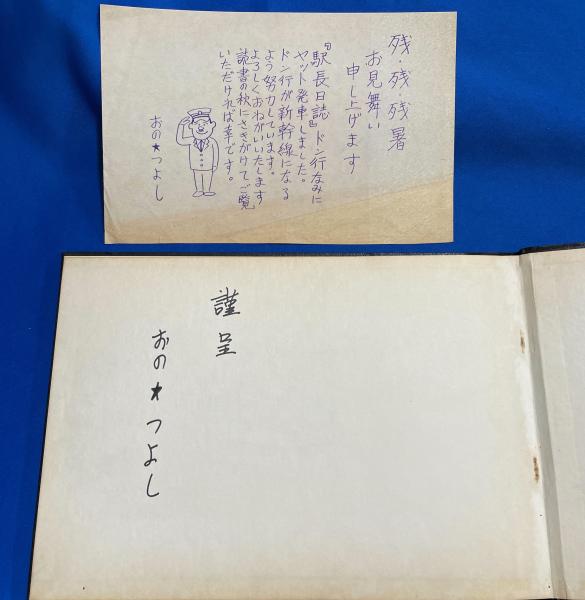 残・残・残暑
お見舞い
申し上げます
『駅長日誌』ドン行なみに
ヤット発車しました。
ドン行が新幹線になる
よう努力しています。
よろしくおねがいいたします
読書の秋にさきがけてご覧
いただければ幸です。
おの★つよし
謹呈
おの★つよし